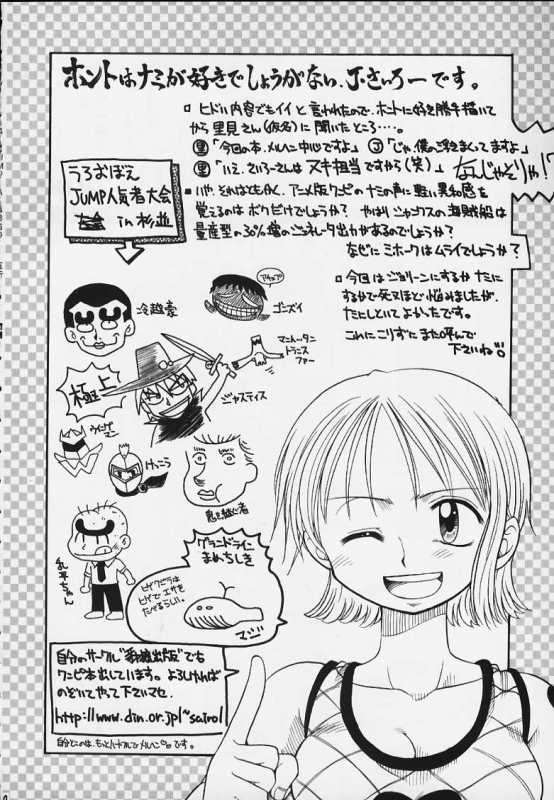 ホントはナミが好きでしょうがない、J.さいろーです。
□ ヒドい内容でもイイと言われたので、ホントに好き勝手描いて
から里見さん(仮名)に聞いたところ…。
里「今回の本、メルヘン中心ですよ」 J「じゃ、僕のご好きまくってますよ」
里「いえ、さいろーさんはヌキ担当ですから(笑)」 なんじゃそりゃ!?
うろおぼえ
JUMP人気者大会
in 杉並
■ いや、それはともかく、アニメ版ワンピのナミの声に軽い異和感を
覚えるのはボクだけでしょうか? やはりシャンクスの海賊船は
量産型の30%増のジェネレータ出力があるのでしょうか?
なぜにミホークはムライでしょうか?
□ 今回はジョリーンにするかナミに
するかで死ぬほど悩みましたが、
ナミにしといてよかったです。
これにこりずにまた呼んで
下さいね!!
冷越豪
アイラブユ
ゴンズイ
マンハッタン
トランス
ファー
極上
ジャスティス
ウイング
マン
けっこう
鬼を継ぐ者
乱平ちゃん
グランドライン
まめちしき
ヒゲクジラは
ヒゲでエサを
たべるらしい。
自分のサークル"出版"でも
ワンピ本出しています。よろしければ
のぞいてやって下さいマセ。
http://www.din.or.jp/~sairo/
自分とこのは、もっとハードでメルヘンです。